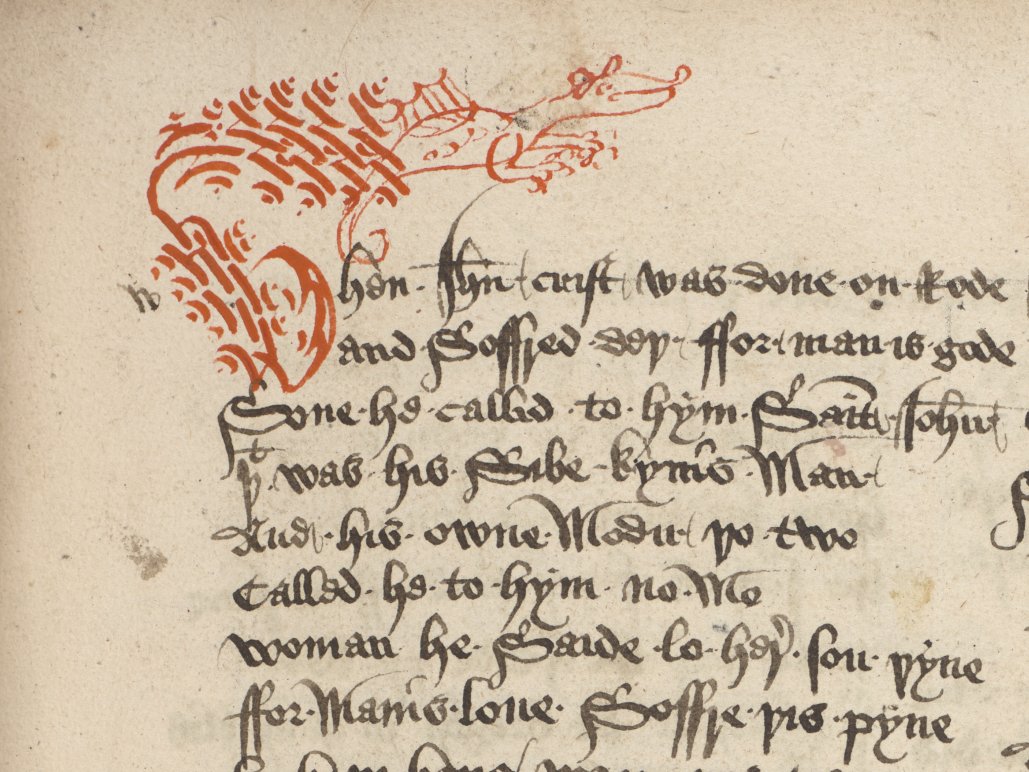 When · Jhu crist was · done · on · Rode
and · Soffred dey · ffor · man · is · gode
Sone · he · called · to · hym · Saint · John
þt was · his · Sibe · kynnis · Man ·
And · his · owne · Modir yo · two
Called · he · to · hym · no · Mo
woman he · Saide · lo · her · son · yyne
ffor · Mannis · loue · Soffre · yis · pyne